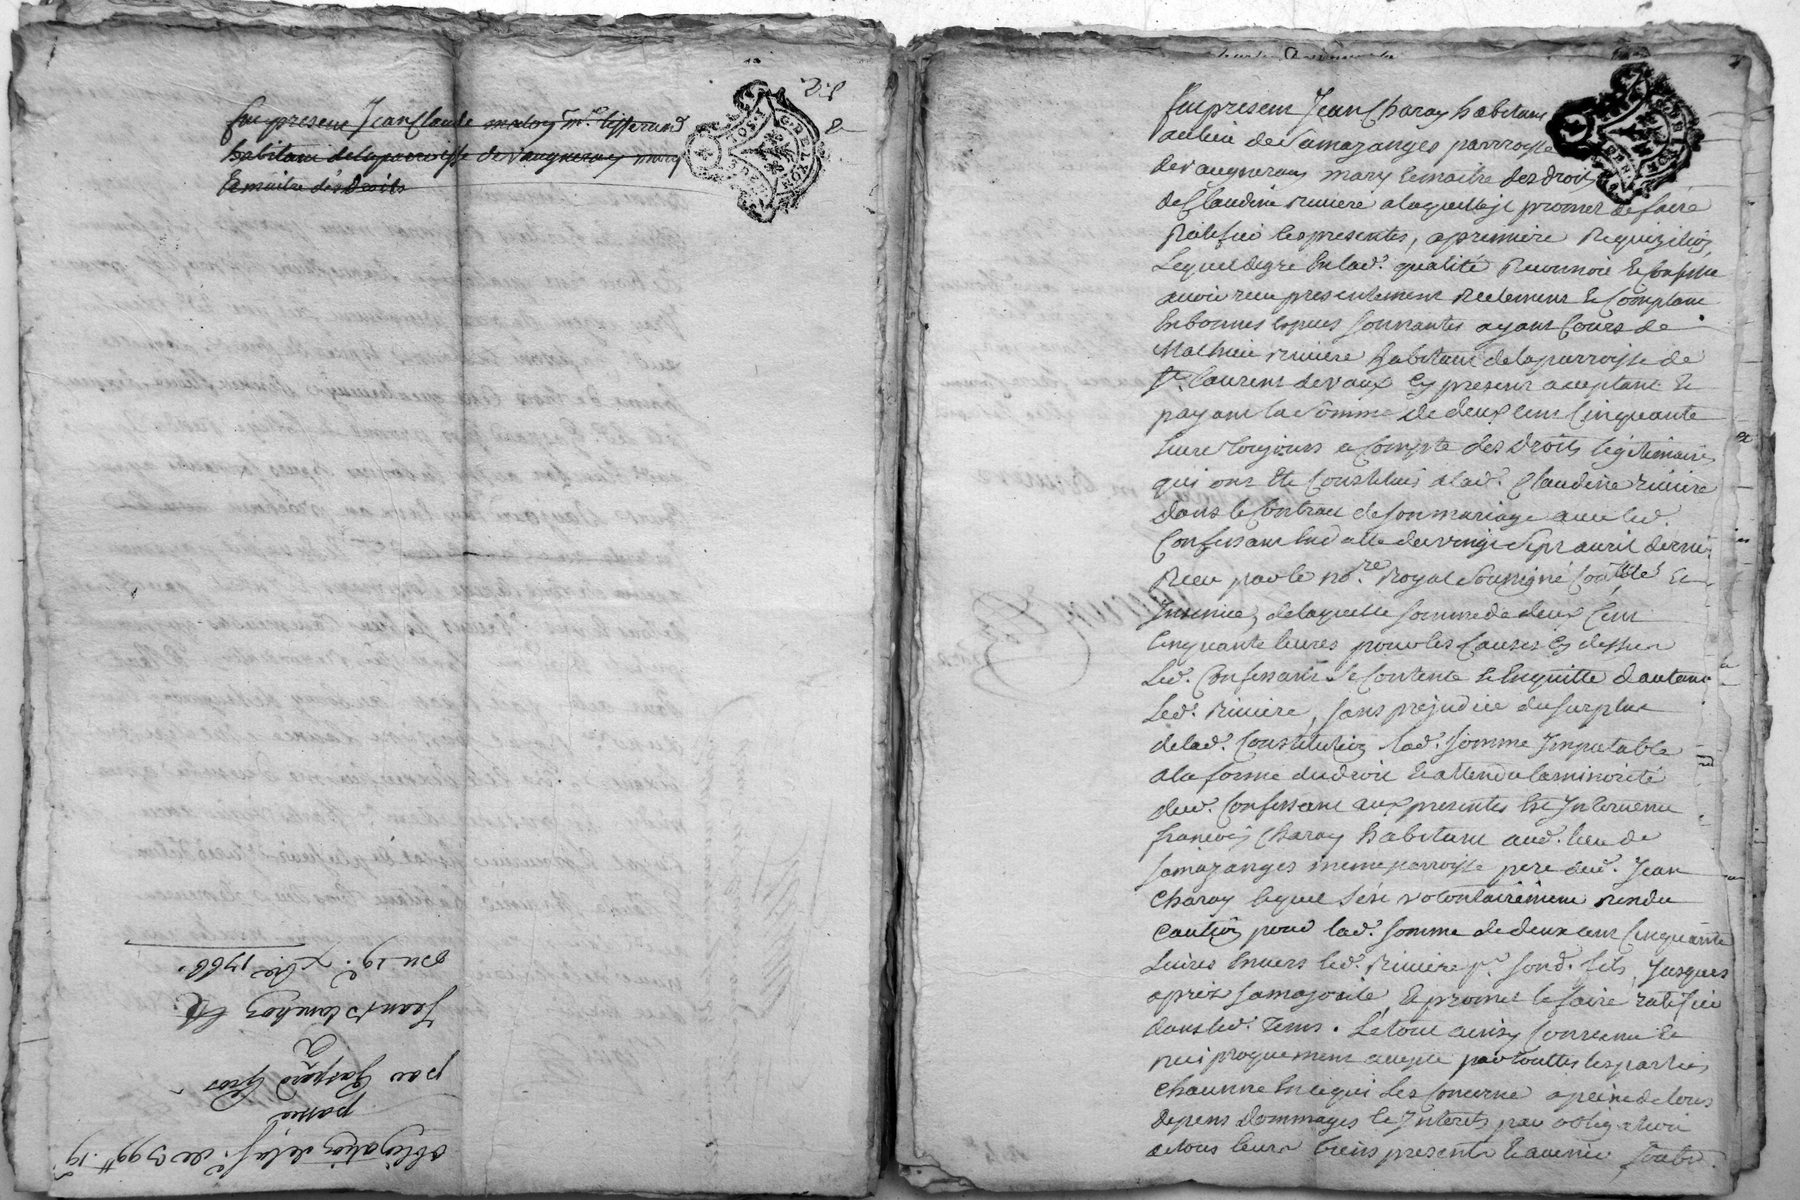 fut present Jean Claude
habitant de la parroisse de vaugneray mary
Le maitre des Droits
obligation de la s.e de 399tt 19s
passée
par Gaspard Gros
a
Jean Blanchoz
Du 19.e xbre 1766.
fut present Jean Charay habitant
au lieu de Samazanges parroisse
de vaugneray mary Le maitre des droits
de Claudine riviere a laquelle il promet de faire
Ratifier les presentes, a premiere Requizition,
Lequel de gre En lad.e qualité Reconnoit Et Confesse
avoir receu presentement Reelement Et Comptant
En bonnes Especes sonnantes ayant Cours de
Mathieu riviere habitant de la parroisse de
St. Laurent de vaux Cy present aceptant Et
payant la Somme De deux Cent Cinquante
Livres toujours a Compte des Droits legitimaires
qui ont Eté Constitués a lad.e Claudine riviere
dans le Contrat de son mariage avec led.
Confessant En datte du vingt Sept avril dernier
Receu par le no.re Royal Soussigné Controllé Et
Insinué, de laquelle somme de deux Cent
Cinquante livres pour les Causes Cy dessus
Led. Confessant Se Contente Et En quitte d'autant
Led. Riviere, sans prejudice du surplus
de lad.e Constitution lad.e somme Imputable
a la forme du droit Et attendu la minorité
dud. Confessant aux presentes Est Intervenu
françois Charay habitant aud. lieu de
samazanges meme parroisse pere dud. Jean
Charay lequel s'est volontairement rendu
Caution pour lad.e somme de deux cent Cinquante
Livres Envers led. Riviere p.r sond. fils, Jusques
apres sa majorité, Et promet le faire ratifier
dans led. tems. Le tout ainsy Convenu Et
reciproquement accepté par touttes les parties
chacunne En ce qui Les Concerne a peine de tous
depens Dommages Et Interets, par obligation
de tous leurs biens presents Et avenir